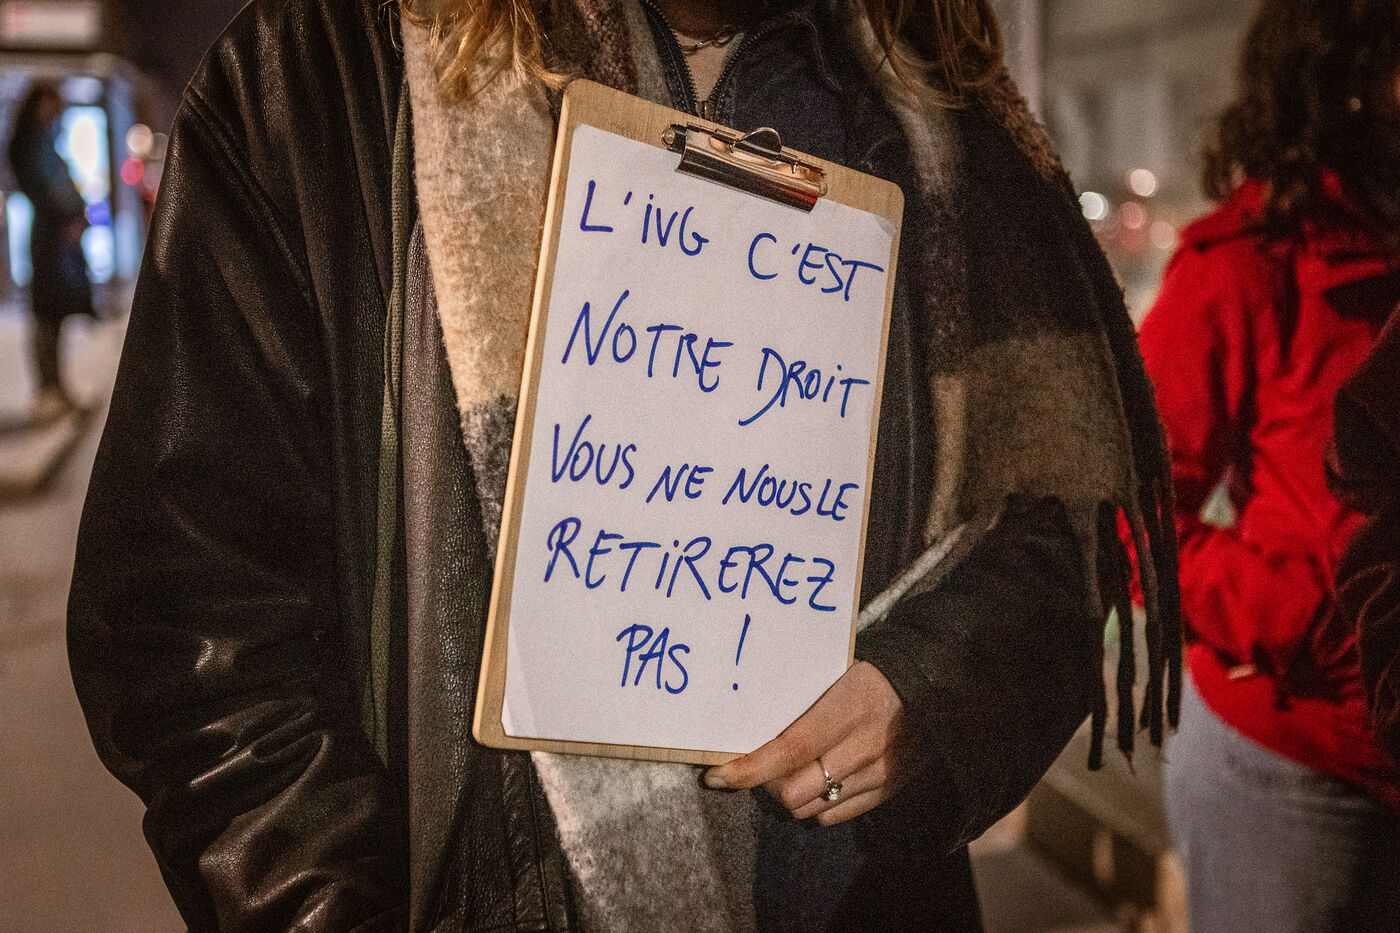 L'iVG C'EST
NOTRE DROiT
VOUS NE NOUS LE
RETiREREZ
PAS !